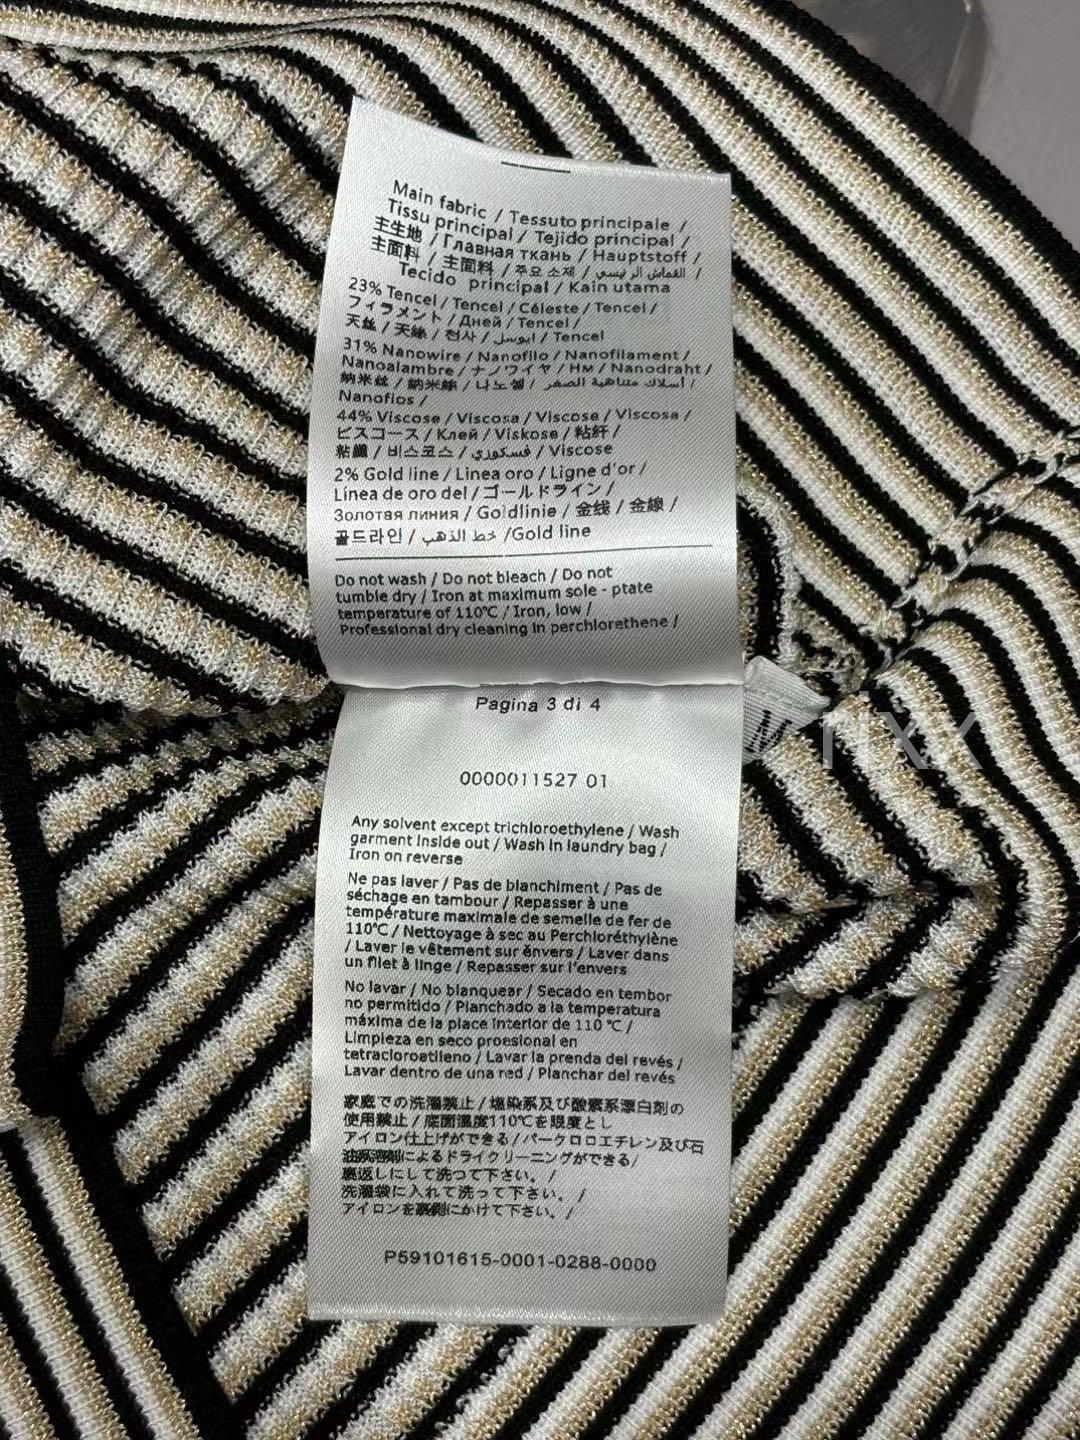 Main fabric / Tessuto principale /
Tissu principal / Tejido principal /
主生地 / Главная ткань / Hauptstoff /
主面料 / 主面料 / 주요 소재 / القماش الرئيسي /
Tecido principal / Kain utama
23% Tencel / Tencel / Céleste / Tencel /
フィラメント / Дней / Tencel /
天丝 / 天絲 / 천사 / ايوسل / Tencel
31% Nanowire / Nanofilo / Nanofilament /
Nanoalambre / ナノワイヤ / Нм / Nanodraht /
納米丝 / 納米絲 / 나노셀 / أسلاك متناهية الصغر /
Nanofios /
44% Viscose / Viscosa / Viscose / Viscosa /
ビスコース / Клей / Viskose / 粘纤 /
粘纖 / 비스코스 / فسكوزي / Viscose
2% Gold line / Linea oro / Ligne d'or /
Línea de oro del / ゴールドライン /
Золотая линия / Goldlinie / 金线 / 金線 /
골드라인 / خط الذهب /Gold line
Do not wash / Do not bleach / Do not
tumble dry / Iron at maximum sole - ptate
temperature of 110℃ / Iron, low /
Professional dry cleaning in perchlorethene /
Pagina 3 di 4
0000011527 01
Any solvent except trichloroethylene / Wash
garment inside out / Wash in laundry bag /
Iron on reverse
Ne pas laver / Pas de blanchiment / Pas de
séchage en tambour / Repasser à une
température maximale de semelle de fer de
110℃ / Nettoyage à sec au Perchloréthylène
/ Laver le vêtement sur ênvers / Laver dans
un filet à linge / Repasser sur l'envers
No lavar / No blanquear / Secado en tembor
no permitido / Planchado a la temperatura
máxima de la place interior de 110 ℃ /
Limpieza en seco proesional en
tetracloroetileno / Lavar la prenda del revés /
Lavar dentro de una red / Planchar del revés
家庭での洗濯禁止 / 塩染系及び酸素系漂白剤の
使用禁止 / 底面温度110℃を限度とし
アイロン仕上げができる / パークロロエチレン及び石
油系溶剤によるドライクリーニングができる /
裏返しにして洗つて下さい。 /
洗濯袋に入れて洗って下さい。 /
アイロンを裏側にかけて下さい。 /
P59101615-0001-0288-0000